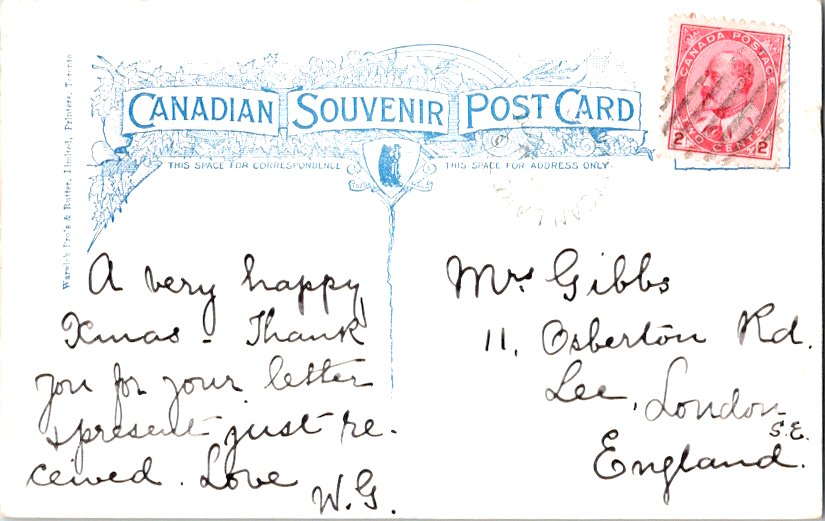 CANADIAN SOUVENIR POST CARD
THIS SPACE FOR CORRESPONDENCE
THIS SPACE FOR ADDRESS ONLY
Warwick Bro's & Rutter, Limited, Printers, Toronto
CANADA POSTAGE
2 TWO CENTS 2
A very happy
Xmas - Thank
you for your letter
& present just re-
ceived. Love
W.G.
Mrs Gibbs
11, Osberton Rd.
Lee, London
S.E.
England.